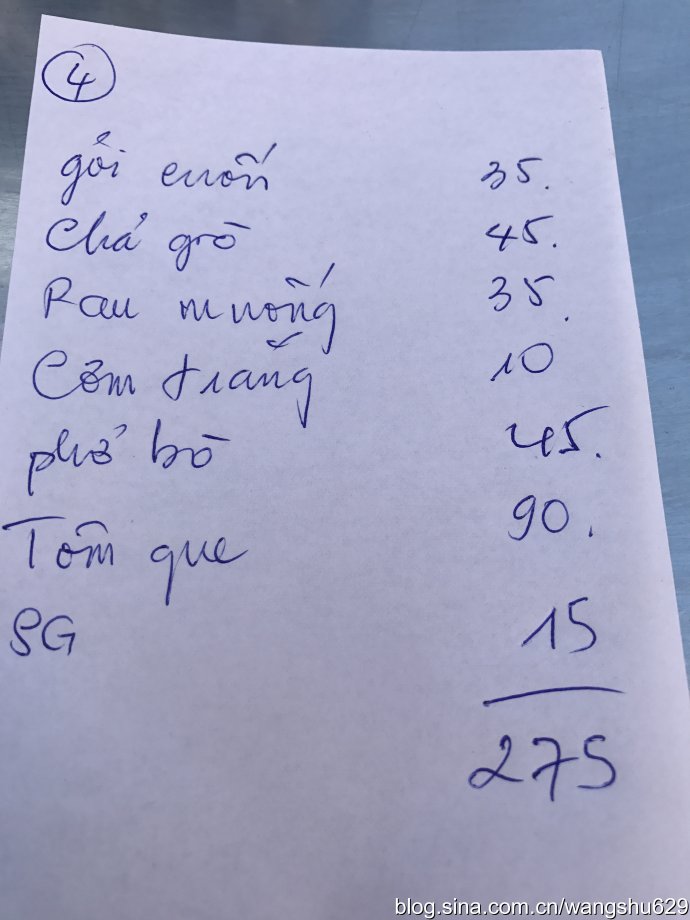 4
gỏi cuốn 35.
Chả giò 45.
Rau muống 35.
Cơm trắng 10
phở bò 45.
Tôm que 90.
SG 15
275
blog.sina.com.cn/wangshu629